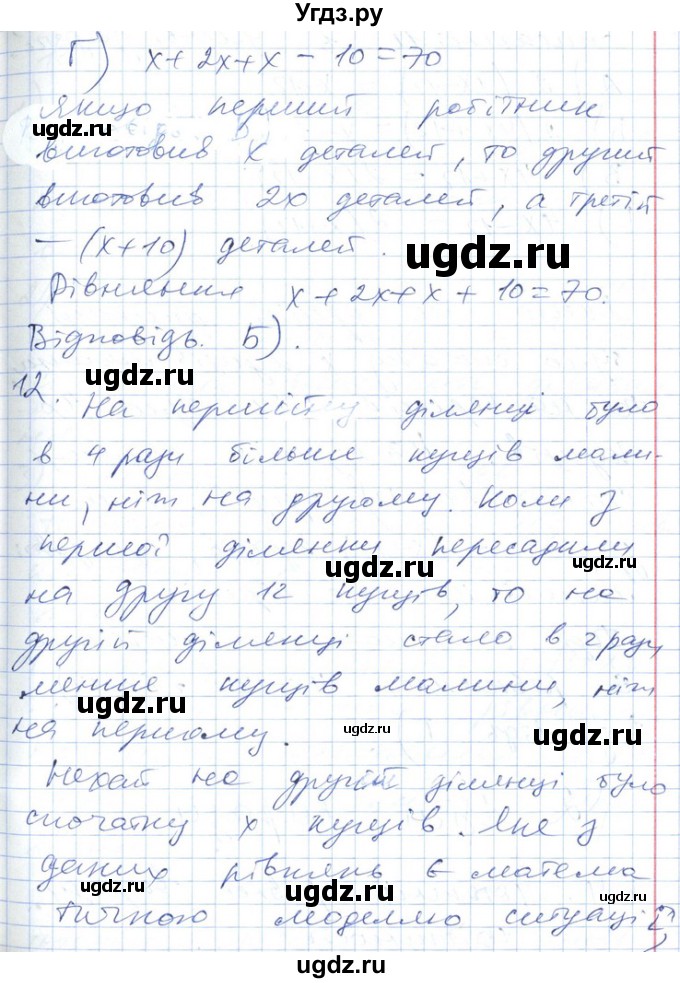 Угдз.ру
Г) x + 2x + x - 10 = 70
Якщо перший робітник
ugdz.ru
виготовив x деталей, то другий
виготовив 2x деталей, а третій
— (x + 10) деталей. ugdz.ru
Рівняння x + 2x + x + 10 = 70.
Відповідь. Б).
ugdz.ru
12. На першій ділянці було
в 4 рази більше кущів мали-
ни, ніж на другому. Коли з
першої ділянки пересадили
ugdz.ru ugdz.ru
на другу 12 кущів, то на
другій ділянці стало в 2 рази
менше кущів малини, ніж
ugdz.ru
на першому. ugdz.ru ugdz.ru
Нехай на другій ділянці було
спочатку x кущів. Яке з
даних рівнянь є матема
ugdz.ru ugdz.ru
тичною моделлю ситуації,
ugdz.ru
ugdz.ru